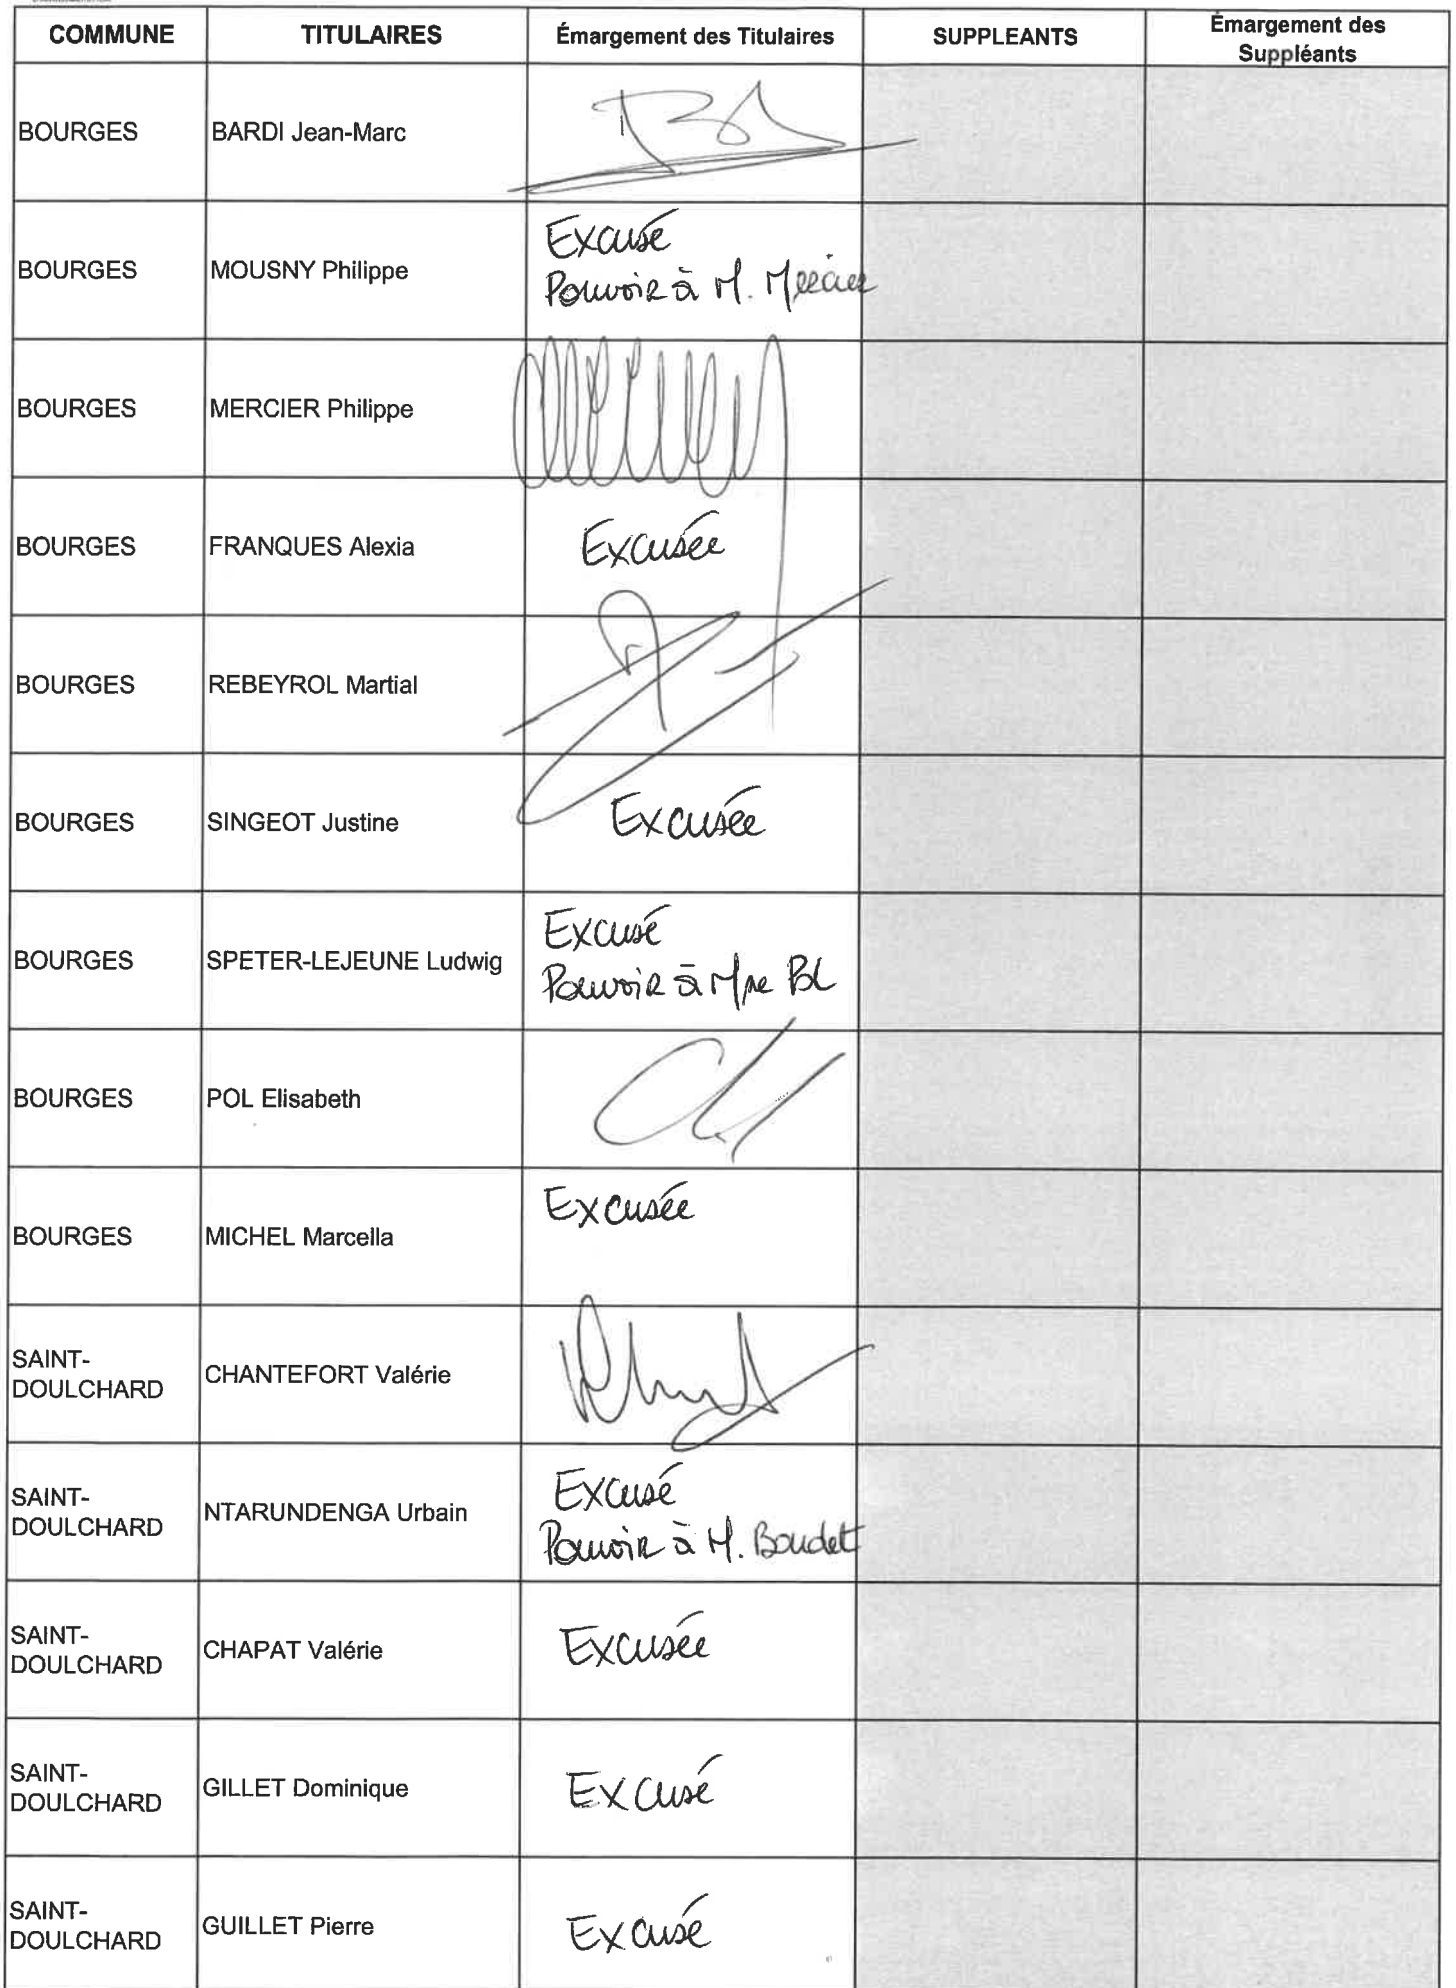 COMMUNE TITULAIRES Émargement des Titulaires SUPPLEANTS Émargement des
Suppléants
BOURGES BARDI Jean-Marc
BOURGES MOUSNY Philippe Excusé
Pouvoir à M. Mercier
BOURGES MERCIER Philippe
BOURGES FRANQUES Alexia Excusée
BOURGES REBEYROL Martial
BOURGES SINGEOT Justine Excusée
BOURGES SPETER-LEJEUNE Ludwig Excusé
Pouvoir à Mme Pol
BOURGES POL Elisabeth
BOURGES MICHEL Marcella Excusée
SAINT-
DOULCHARD CHANTEFORT Valérie
SAINT-
DOULCHARD NTARUNDENGA Urbain Excusé
Pouvoir à M. Boudet
SAINT-
DOULCHARD CHAPAT Valérie Excusée
SAINT-
DOULCHARD GILLET Dominique Excusé
SAINT-
DOULCHARD GUILLET Pierre Excusé